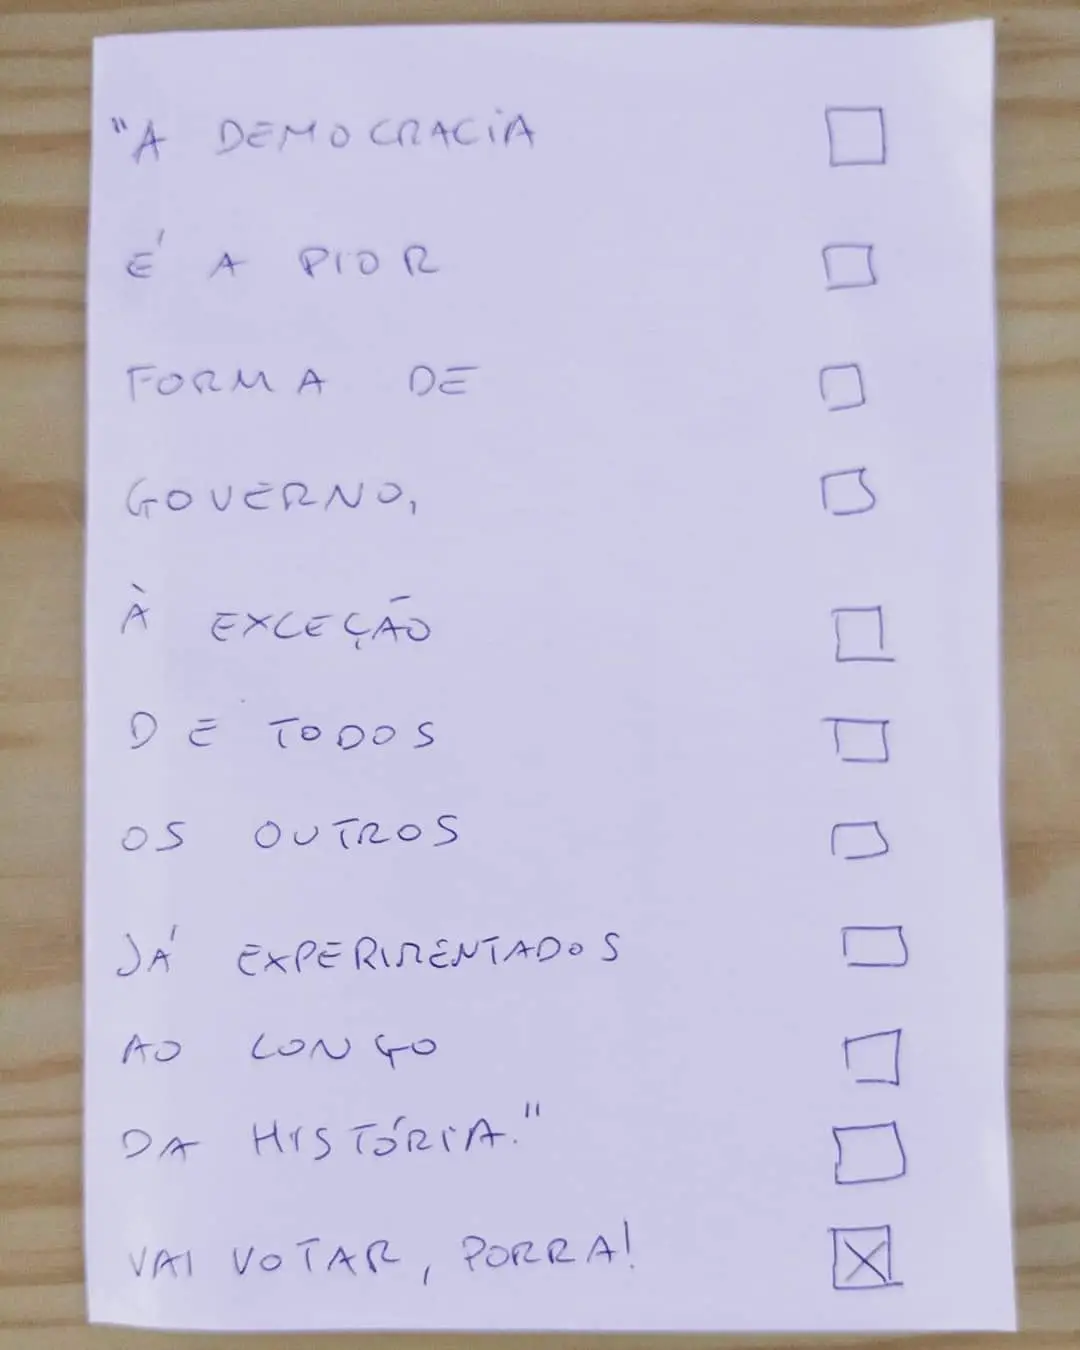 "A DEMOCRACIA
É A PIOR
FORMA DE
GOVERNO,
À EXCEÇÃO
DE TODOS
OS OUTROS
JÁ EXPERIMENTADOS
AO LONGO
DA HISTÓRIA."
VAI VOTAR, PORRA!